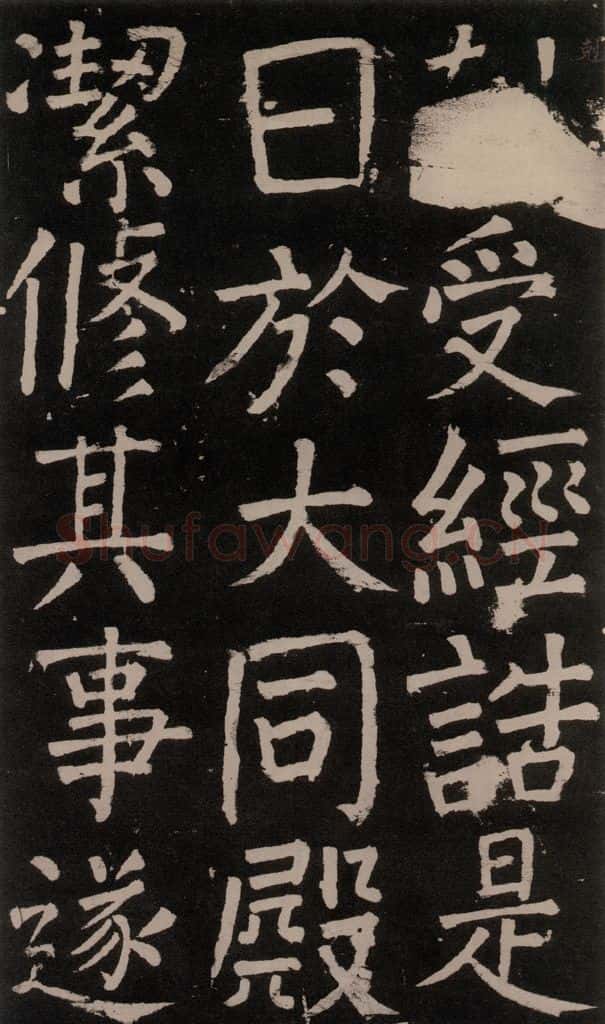 受經誥是
日於大同殿
潔修其事遂
Shufawang.CN